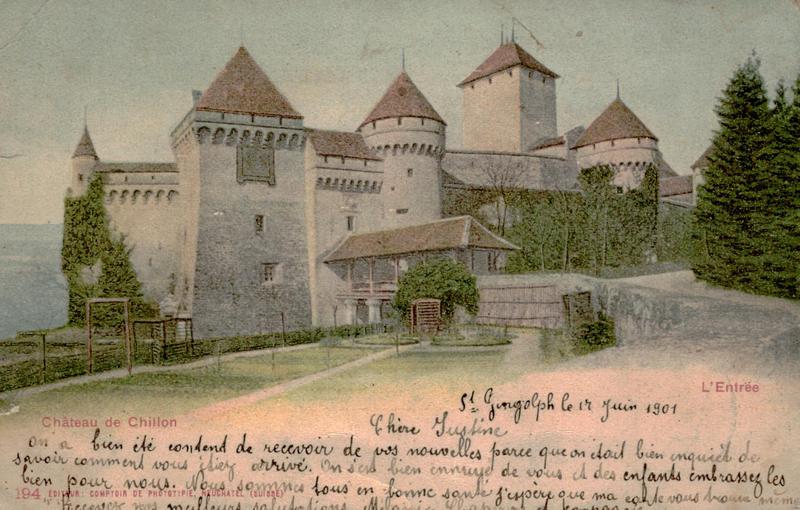 L'Entrée
Château de Chillon
St Gingolph le 17 Juin 1901
Chère Justine
on a bien été contend de recevoir de vos nouvelles parce que on était bien inquiét de
savoir comment vous étiez arrivé. On s'en bien ennuye de vous et des enfants embrassez les
bien pour nous. Nous sommes tous en bonne santé j'espère que ma carte vous trouve même
194 EDITEUR: COMPTOIR DE PHOTOTYPIE, NEUCHATEL (SUISSE)
Recevez mes meilleurs salutations